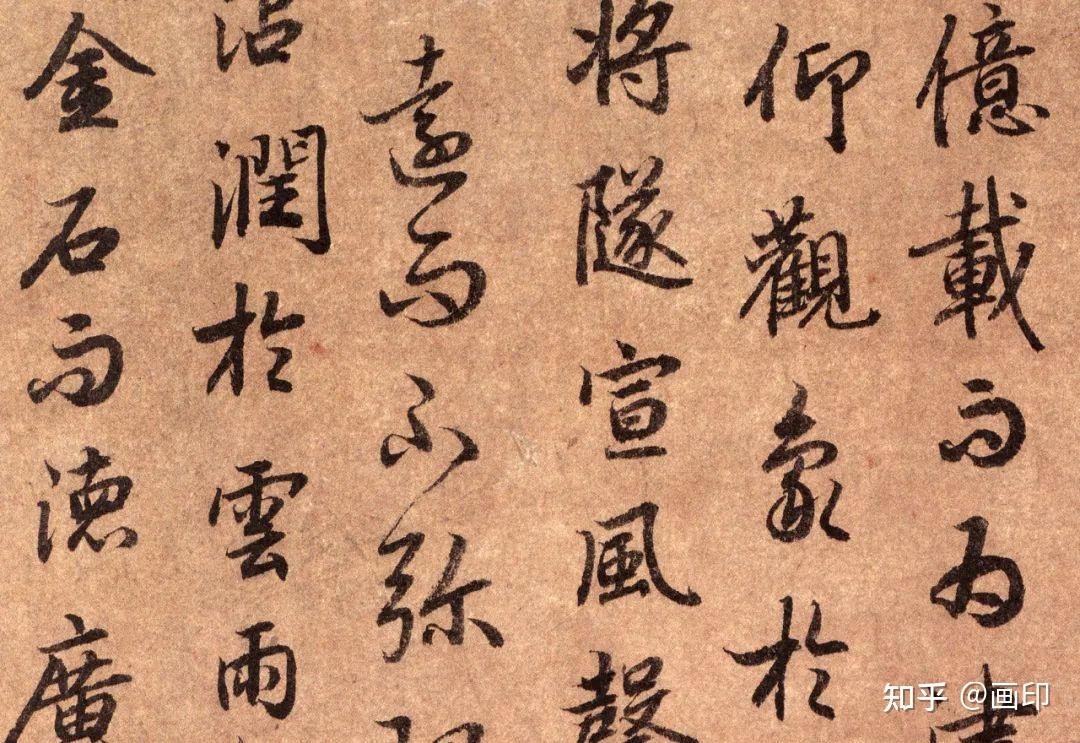 億載而為
仰觀象於
將隧宣風聲
遠而不弥
沾潤於雲雨
金石而德廣
知乎 @画印